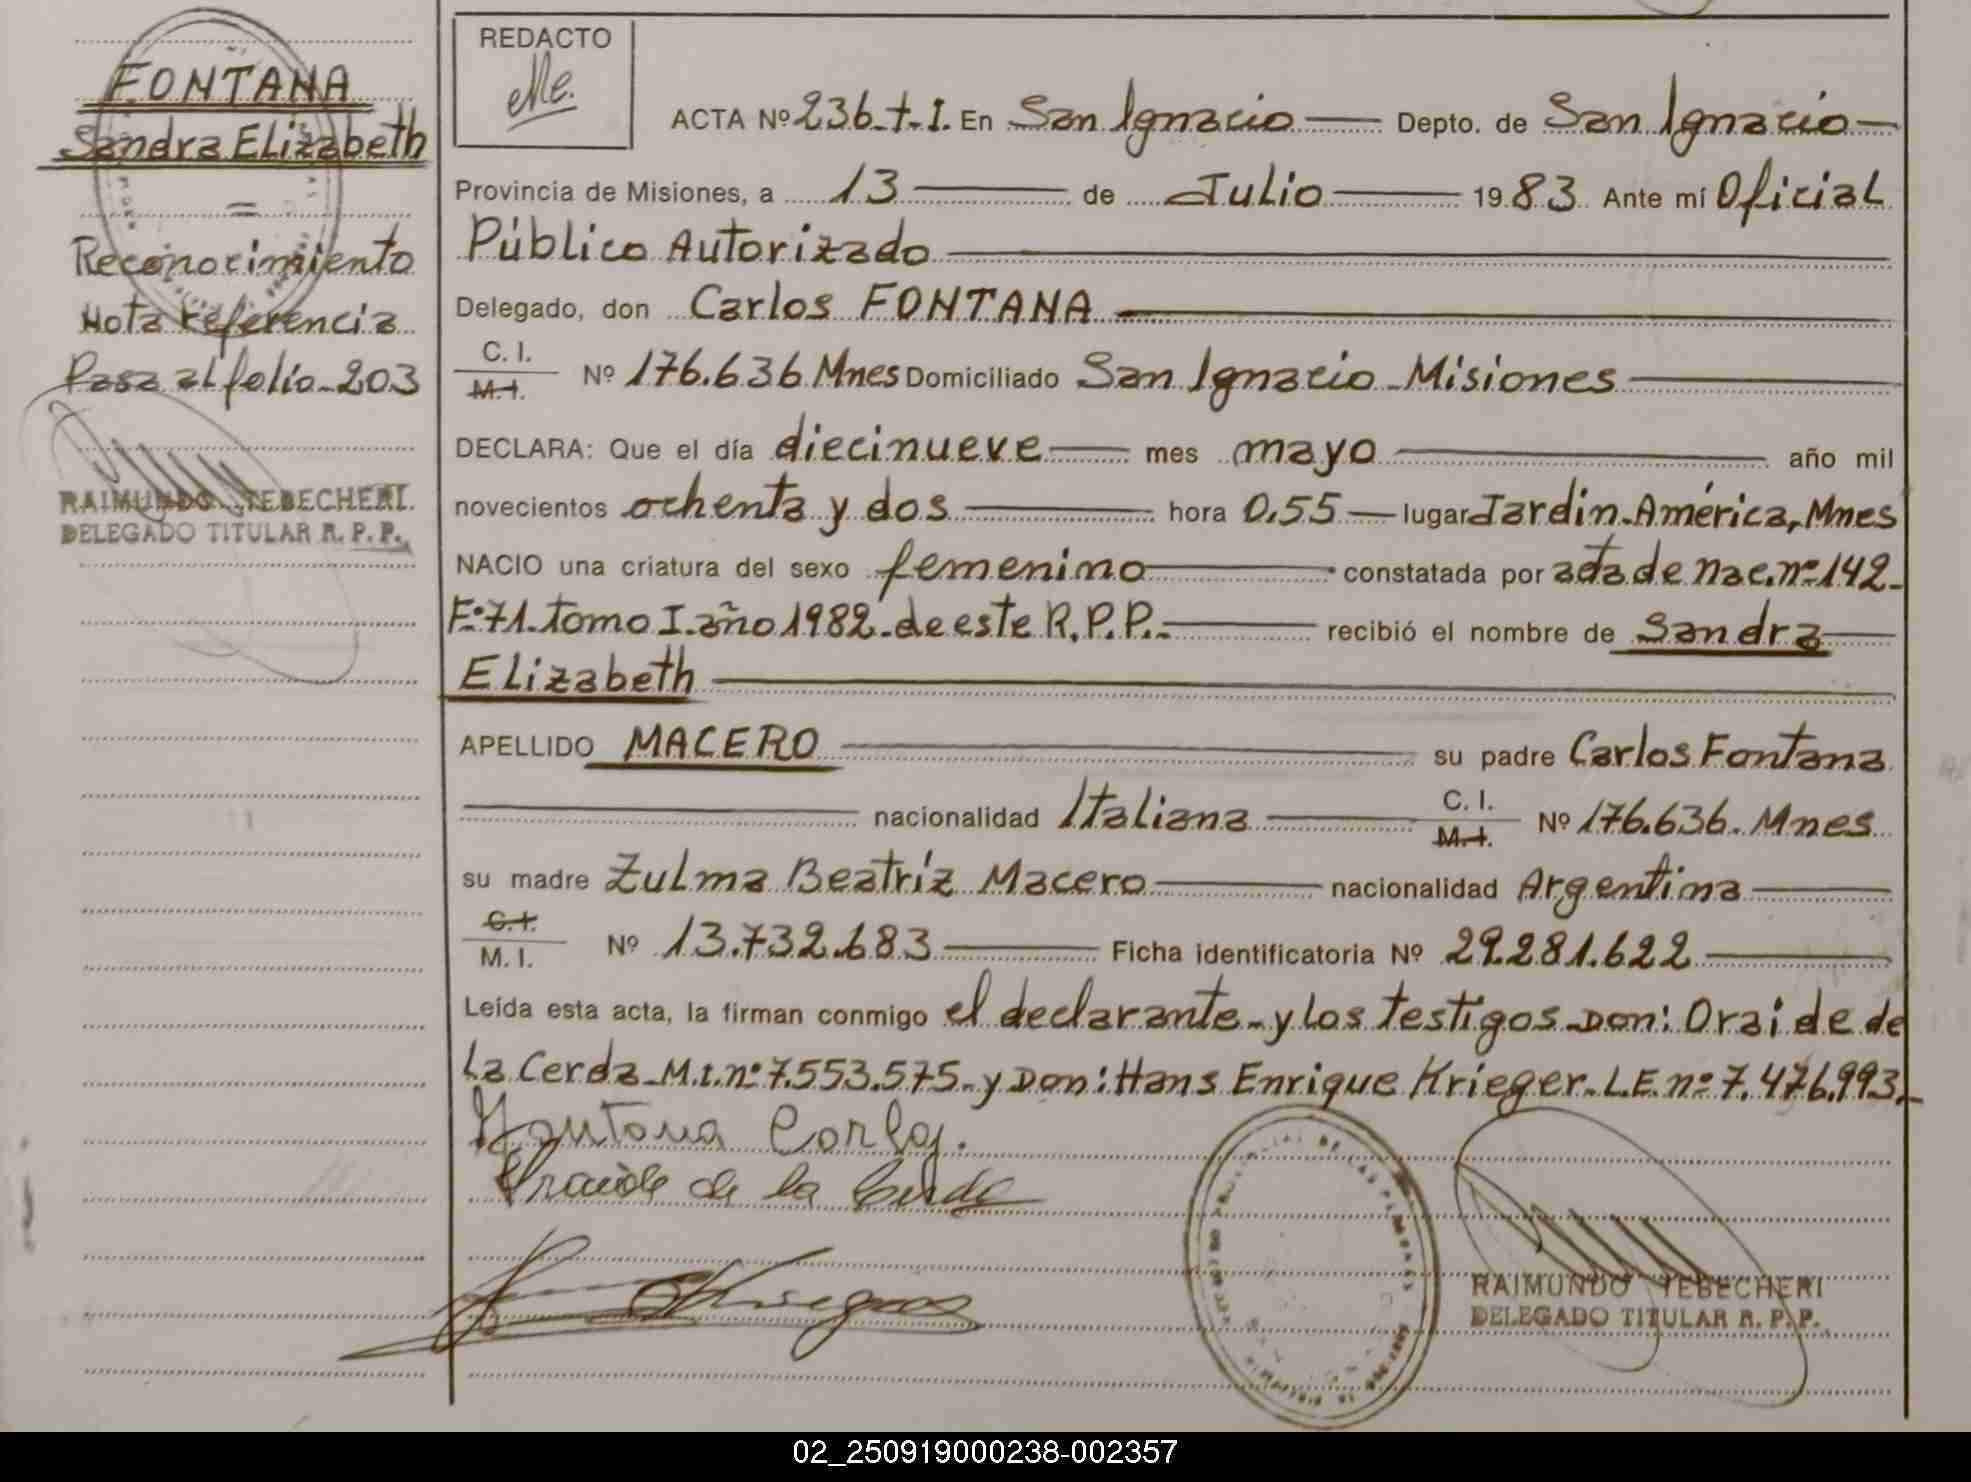 FONTANA
Sandra Elizabeth
=
Reconocimiento
Nota referencia
Pasa al folio 203
RAIMUNDO TEBECHERI.
DELEGADO TITULAR R. P. P.
REDACTO
ACTA Nº 236-t-I. En San Ignacio Depto. de San Ignacio
Provincia de Misiones, a 13 de Julio 1983 Ante mí Oficial
Público Autorizado
Delegado, don Carlos FONTANA
C. I.
M. I. Nº 176.636 Mnes Domiciliado San Ignacio - Misiones
DECLARA: Que el día diecinueve mes mayo año mil
novecientos ochenta y dos hora 0.55 lugar Jardin América, Mnes
NACIO una criatura del sexo femenino constatada por acta de nac. nº 142-
Fº 71. tomo I. año 1982. de este R. P. P. recibió el nombre de Sandra
Elizabeth
APELLIDO MACERO su padre Carlos Fontana
nacionalidad Italiana C. I. M. I. Nº 176.636. Mnes
su madre Zulma Beatríz Macero nacionalidad Argentina
C. I.
M. I. Nº 13.732.683 Ficha identificatoria Nº 29.281.622
Leída esta acta, la firman conmigo el declarante y los testigos Don: Oraide de
La Cerda M.I. nº 7.553.575. y Don: Hans Enrique Krieger. L.E. nº 7.476.993.
Fontana Carlos.
Oraide de la Cerda
RAIMUNDO TEBECHERI
DELEGADO TITULAR R. P. P.
02_250919000238-002357